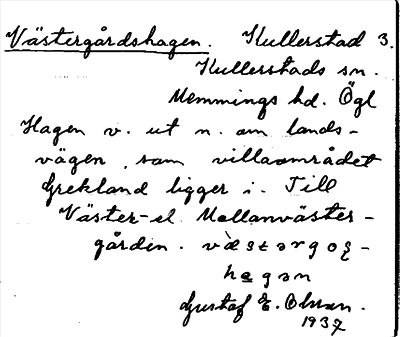 Västergårdshagen. Kullerstad 3.
Kullerstads sn.
Memmings hd. Ögl
Hagen v. ut n. om lands-
vägen, som villaområdet
Grekland ligger i. Till
Väster- el. Mellanväster-
gården.
hagən
Gustaf E. Olsson.
1937